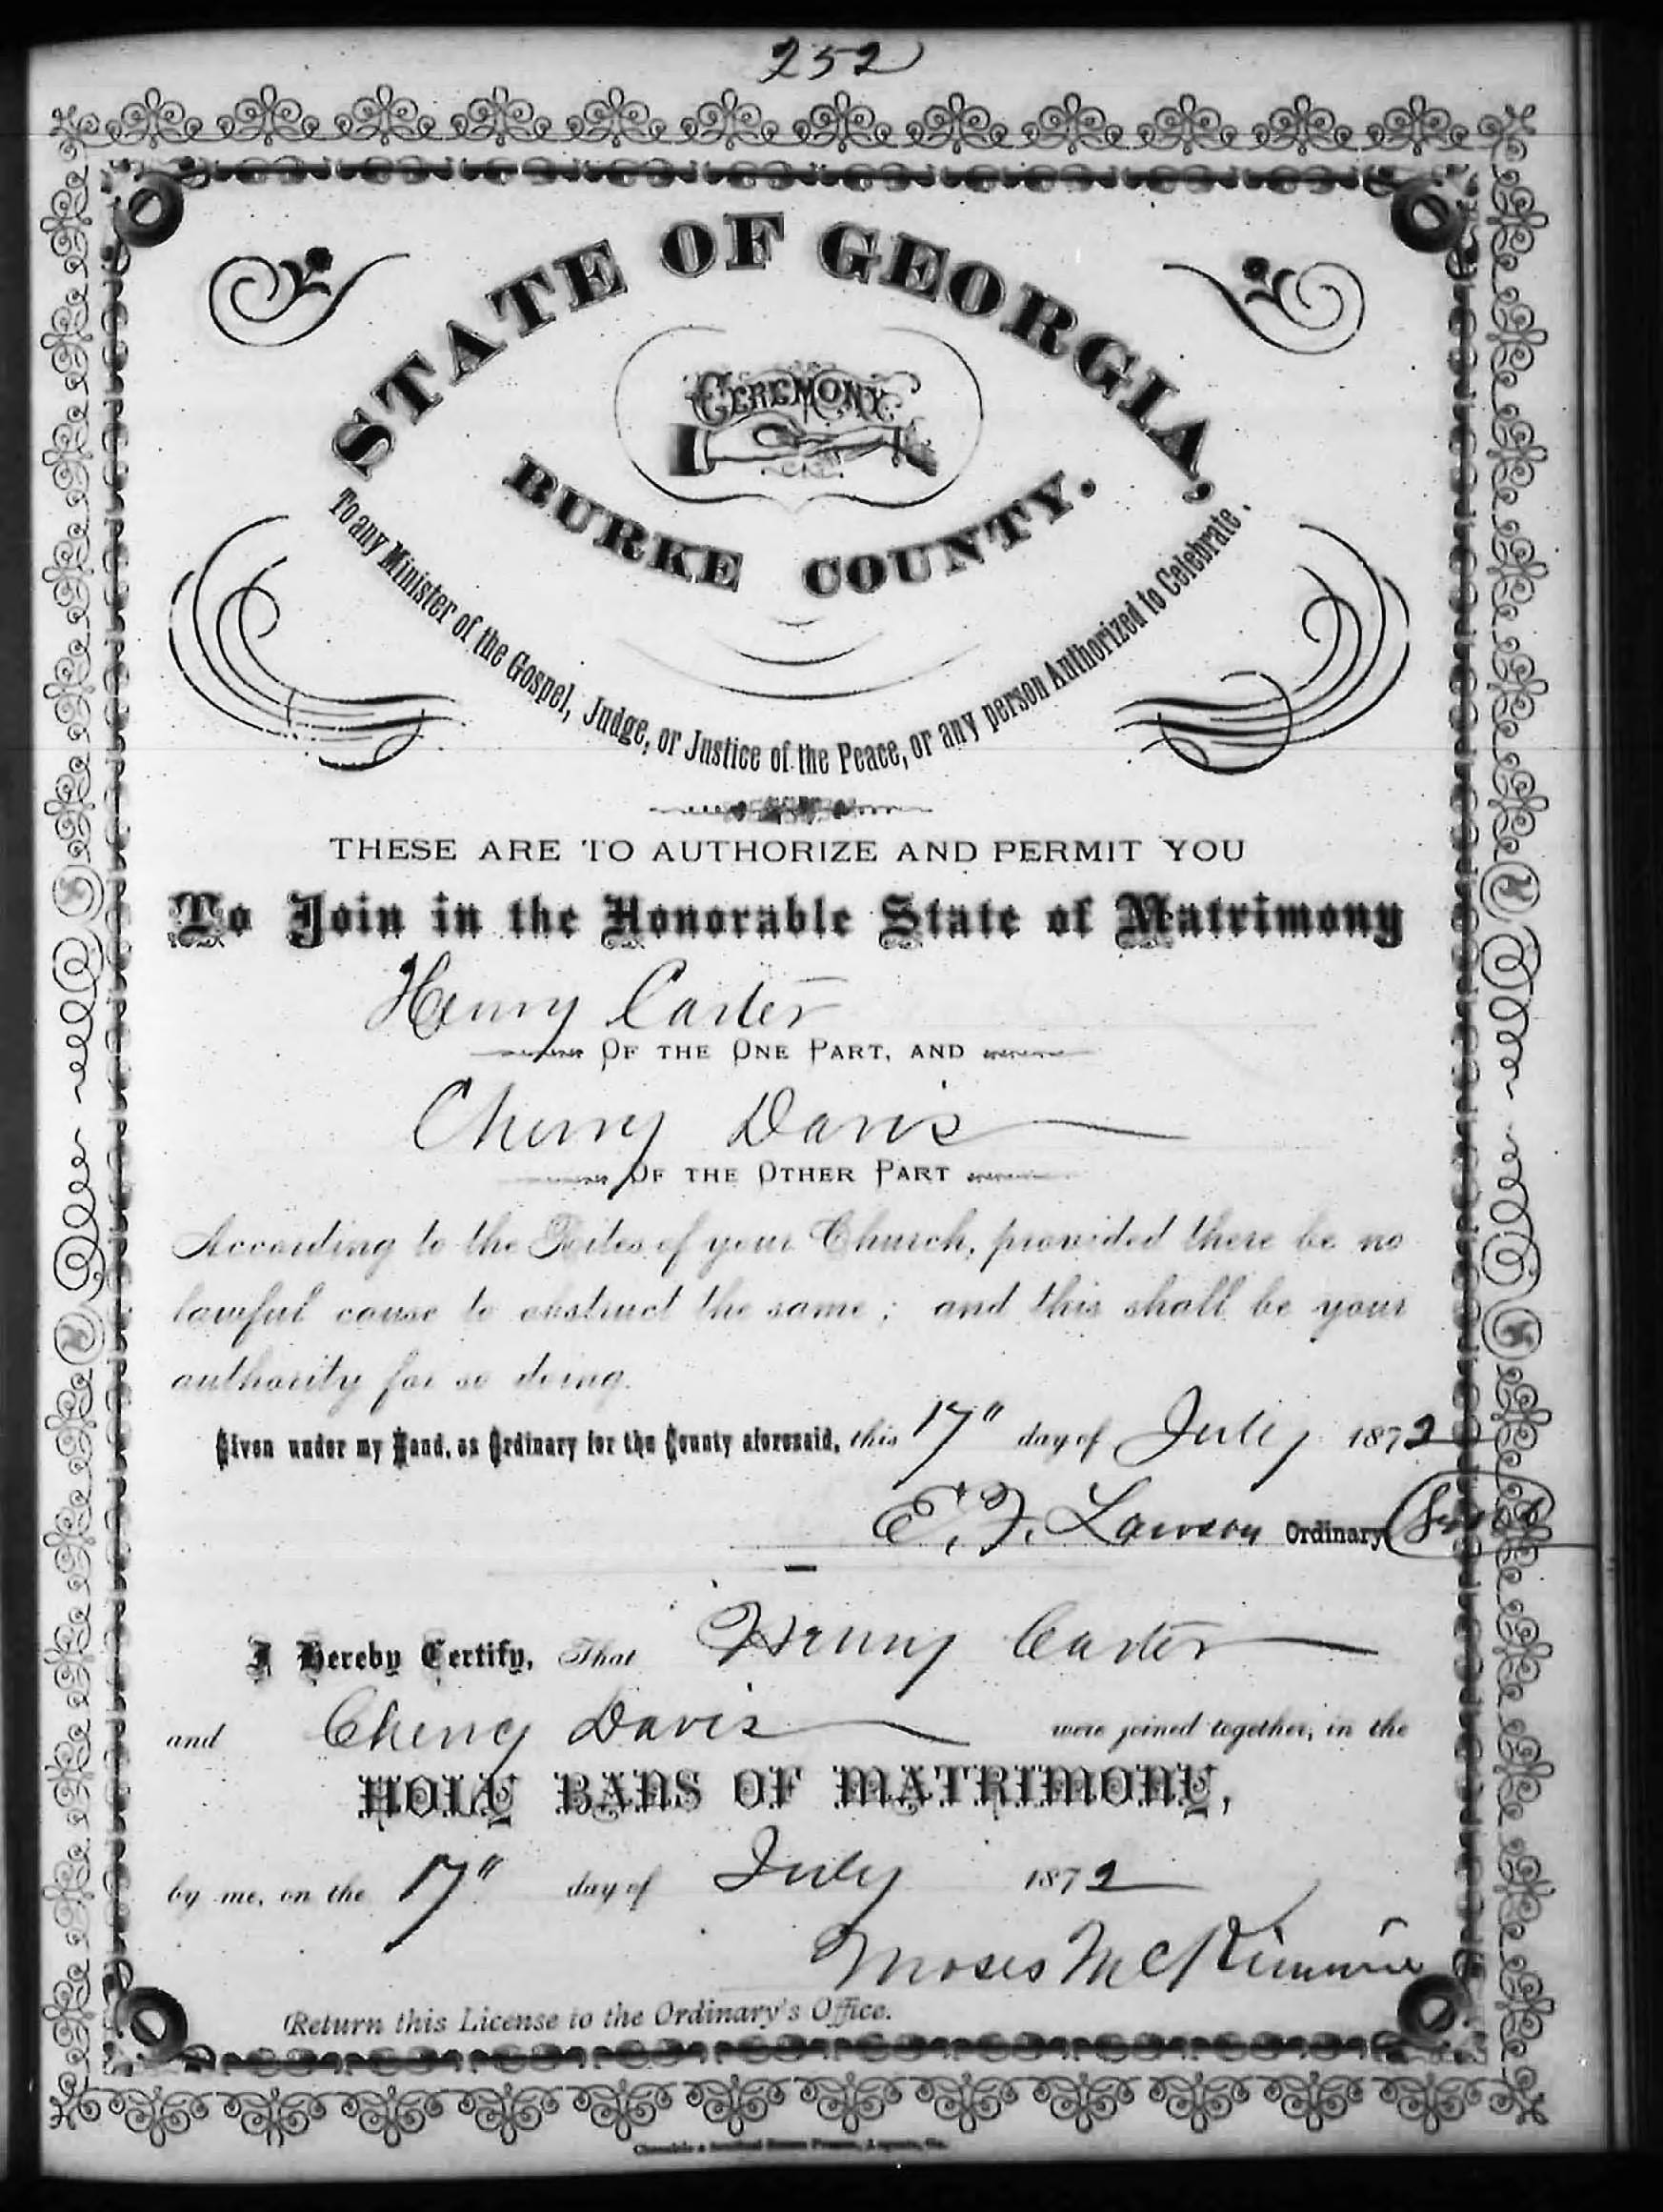 252
STATE OF GEORGIA,
CEREMONY
BURKE COUNTY.
To any Minister of the Gospel, Judge, or Justice of the Peace, or any person Authorized to Celebrate.
THESE ARE TO AUTHORIZE AND PERMIT YOU
To Join in the Honorable State of Matrimony
Henry Carter
OF THE ONE PART, AND
Cherry Davis
OF THE OTHER PART
According to the Rites of your Church, provided there be no
lawful cause to obstruct the same; and this shall be your
authority for so doing.
Given under my Hand, as Ordinary for the County aforesaid, this 17" day of July 1872
E. F. Lawson Ordinary
I Hereby Certify, That Henry Carter
and Cherry Davis were joined together, in the
HOLY BANS OF MATRIMONY,
by me, on the 17" day of July 1872
Moses McKimmie
Return this License to the Ordinary's Office.
Chronicle & Sentinel Steam Presses, Augusta, Ga.